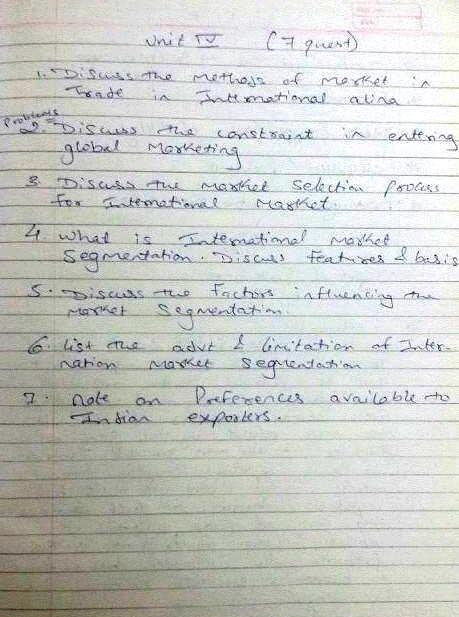 Unit IV (7 quest)
1. Discuss the methods of market in
Trade in International
Problems
2. Discuss the constraint in entering
global Marketing
3 Discuss the market selection process
for International Market.
4. what is International market
Segmentation. Discuss features & basis
5. Discuss the Factors influencing the
market segmentation.
6. list the advt & limitation of Inter-
nation market segmentation
7. note on Preferences available to
Indian exporters.